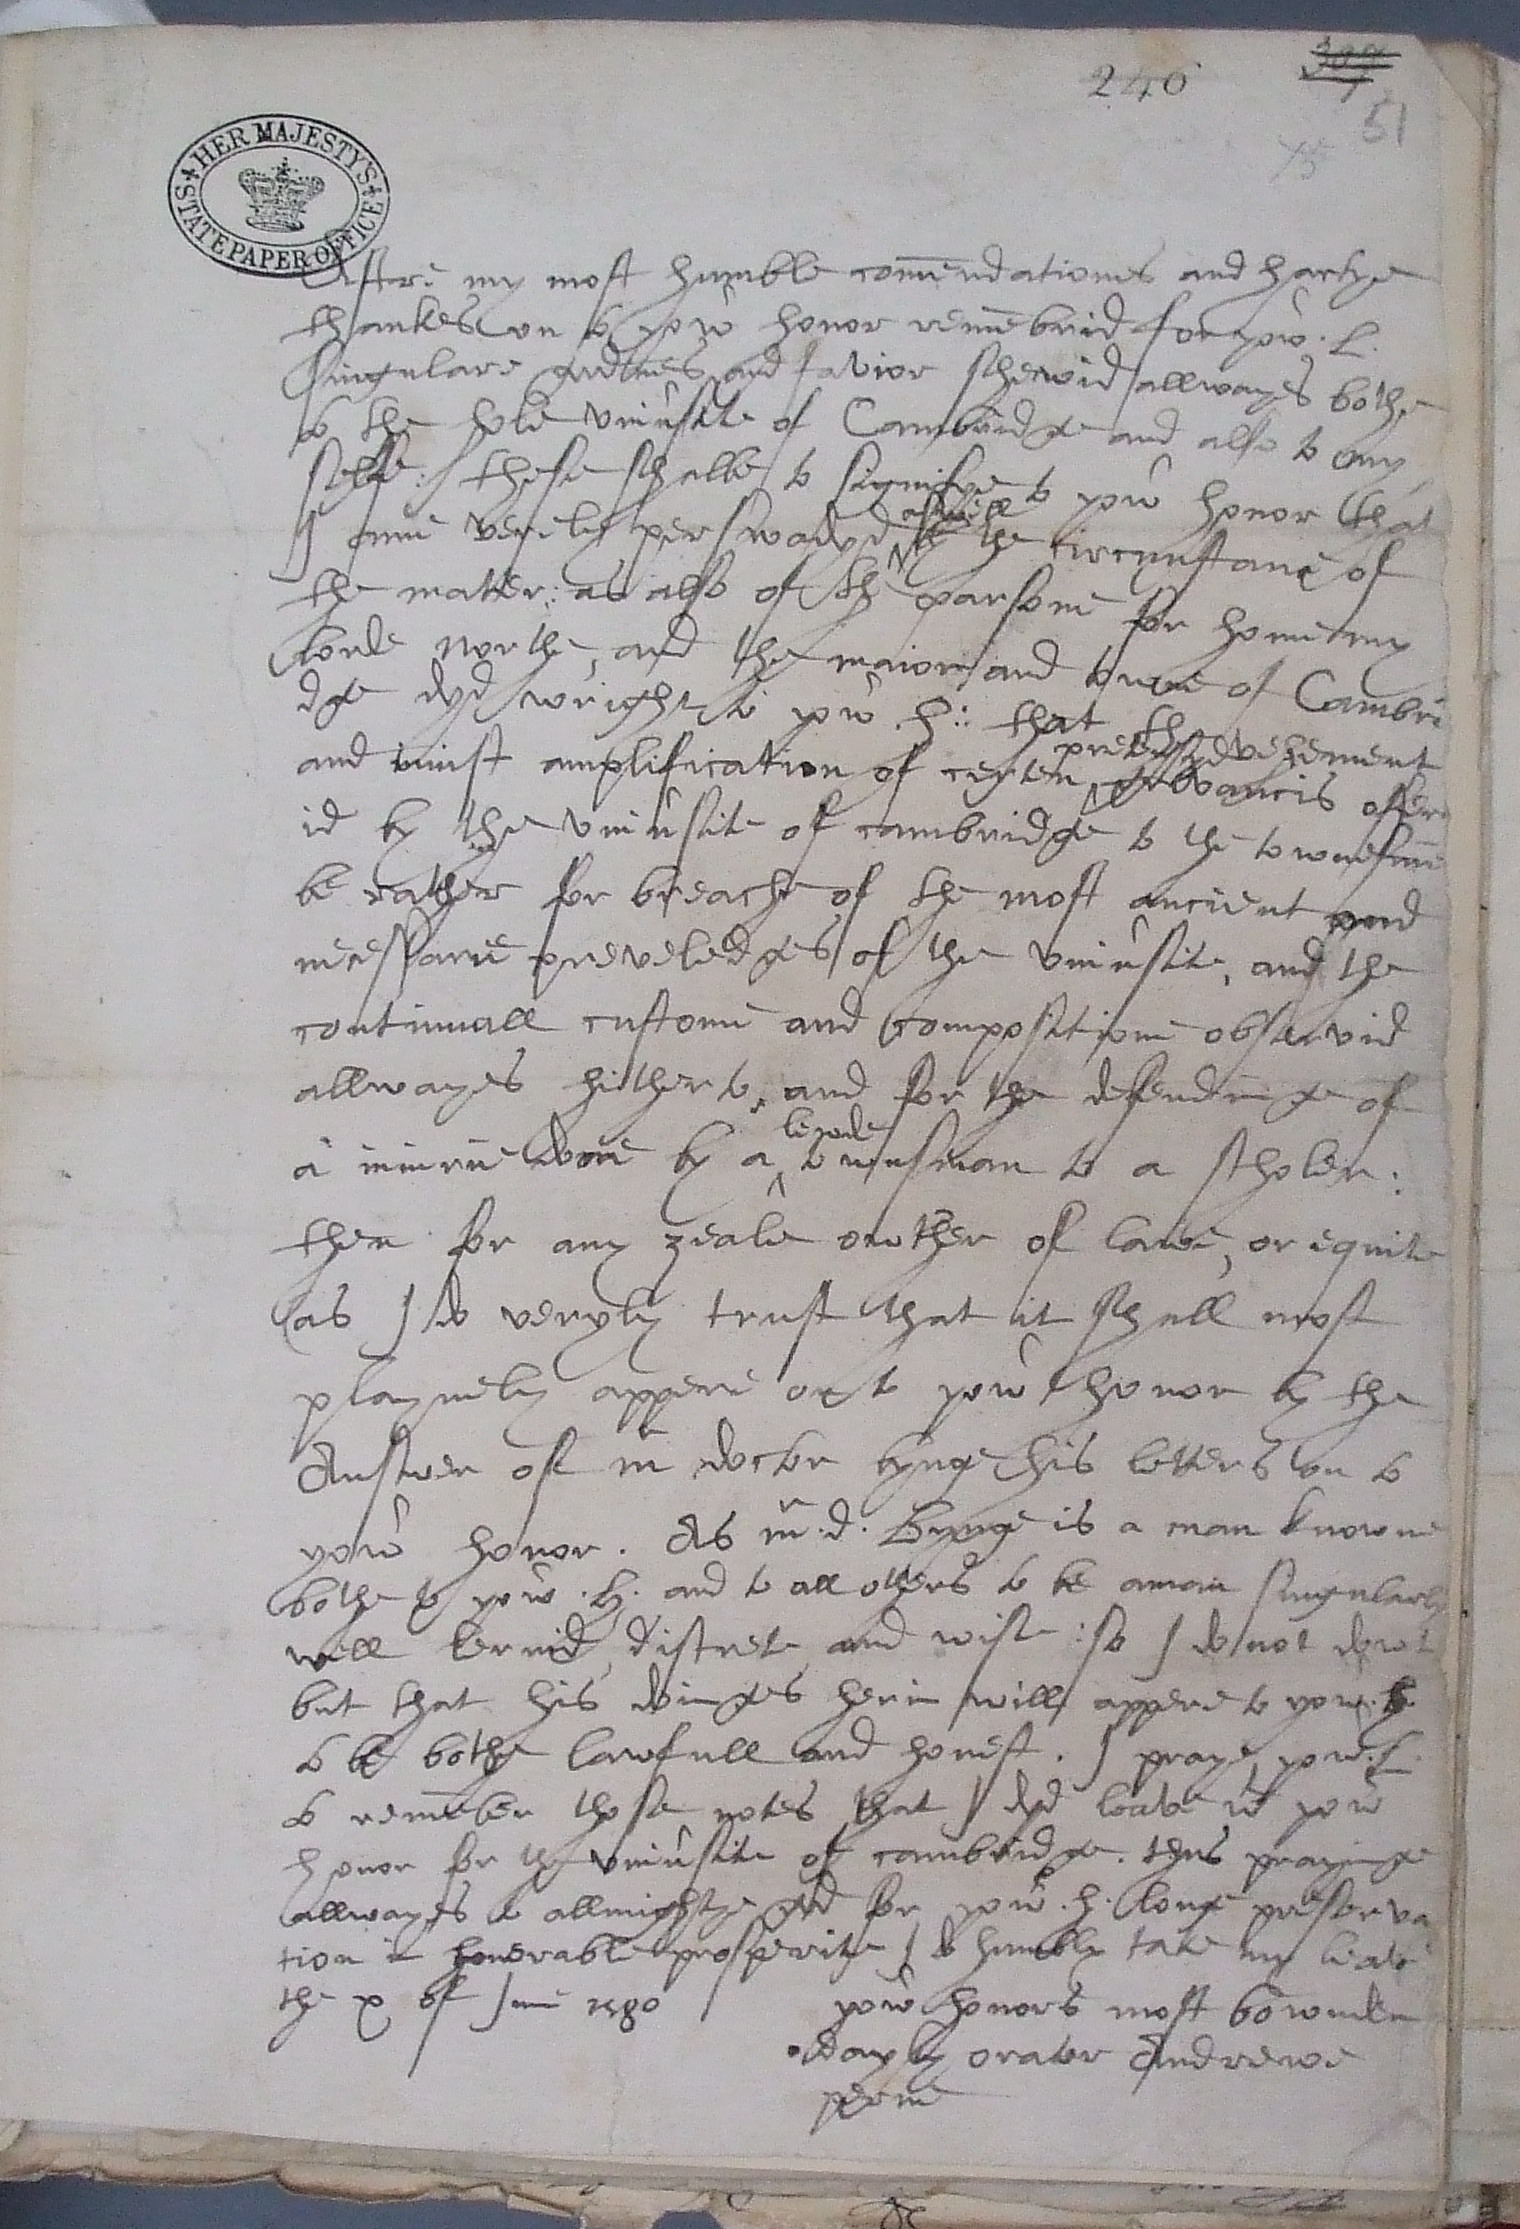 240
51
HER MAJESTY'S
STATE PAPER OFFICE
Aftre my most humble comendationes and hartye
thankes on to yowr honor remebrid for yowr. L.
singulare godnes and favior schewid allwayes bothe
to the hole universite of Cambridge and also to my
selfe: these schalbe to signifye to yowr honor that
I ame verely perswadyd aswell by the circumstance of
the mater: as also of the parsone for home my
lorde northe, and the maior and towne of Cambri
dge dyd wright to yowr. h: that the vehement
and iniust amplification of certen pretensyd grevancis offer
id by the universite of cambridge to the townesmen
be rather for breache of the most ancient and
necessarie preveledges of the universite, and the
continuall custome and compositione observid
allwayes hitherto, and for the defendinge of
a iniurie done by a lewde townsman to a scholer:
then for any zeale owther of lawe, or equite
as I do veryly trust that it schall most
playnely appere on to yowr honor by the
Answer of mr doctor bynge his letters on to
yowr honor. As mr. d. Bynge is a man knowne
bothe to yowr. h. and to all others to be aman singularly
well lernid, discrete and wise: so I do not dowt
but that his doinges herin will appere to yowr. h.
to be bothe lawfull and honest. I praye yowr. L.
to remember those notes that I dyd leave wt yowr
honor for the universite of cambridge. thus prayinge
allwayes to allmightye god for yowr. h. longe preserva
tion in honorable prosperite I do humbly take my leave
the x of June 1580
yowr honors most bownden
dayly orator Andrewe
perne